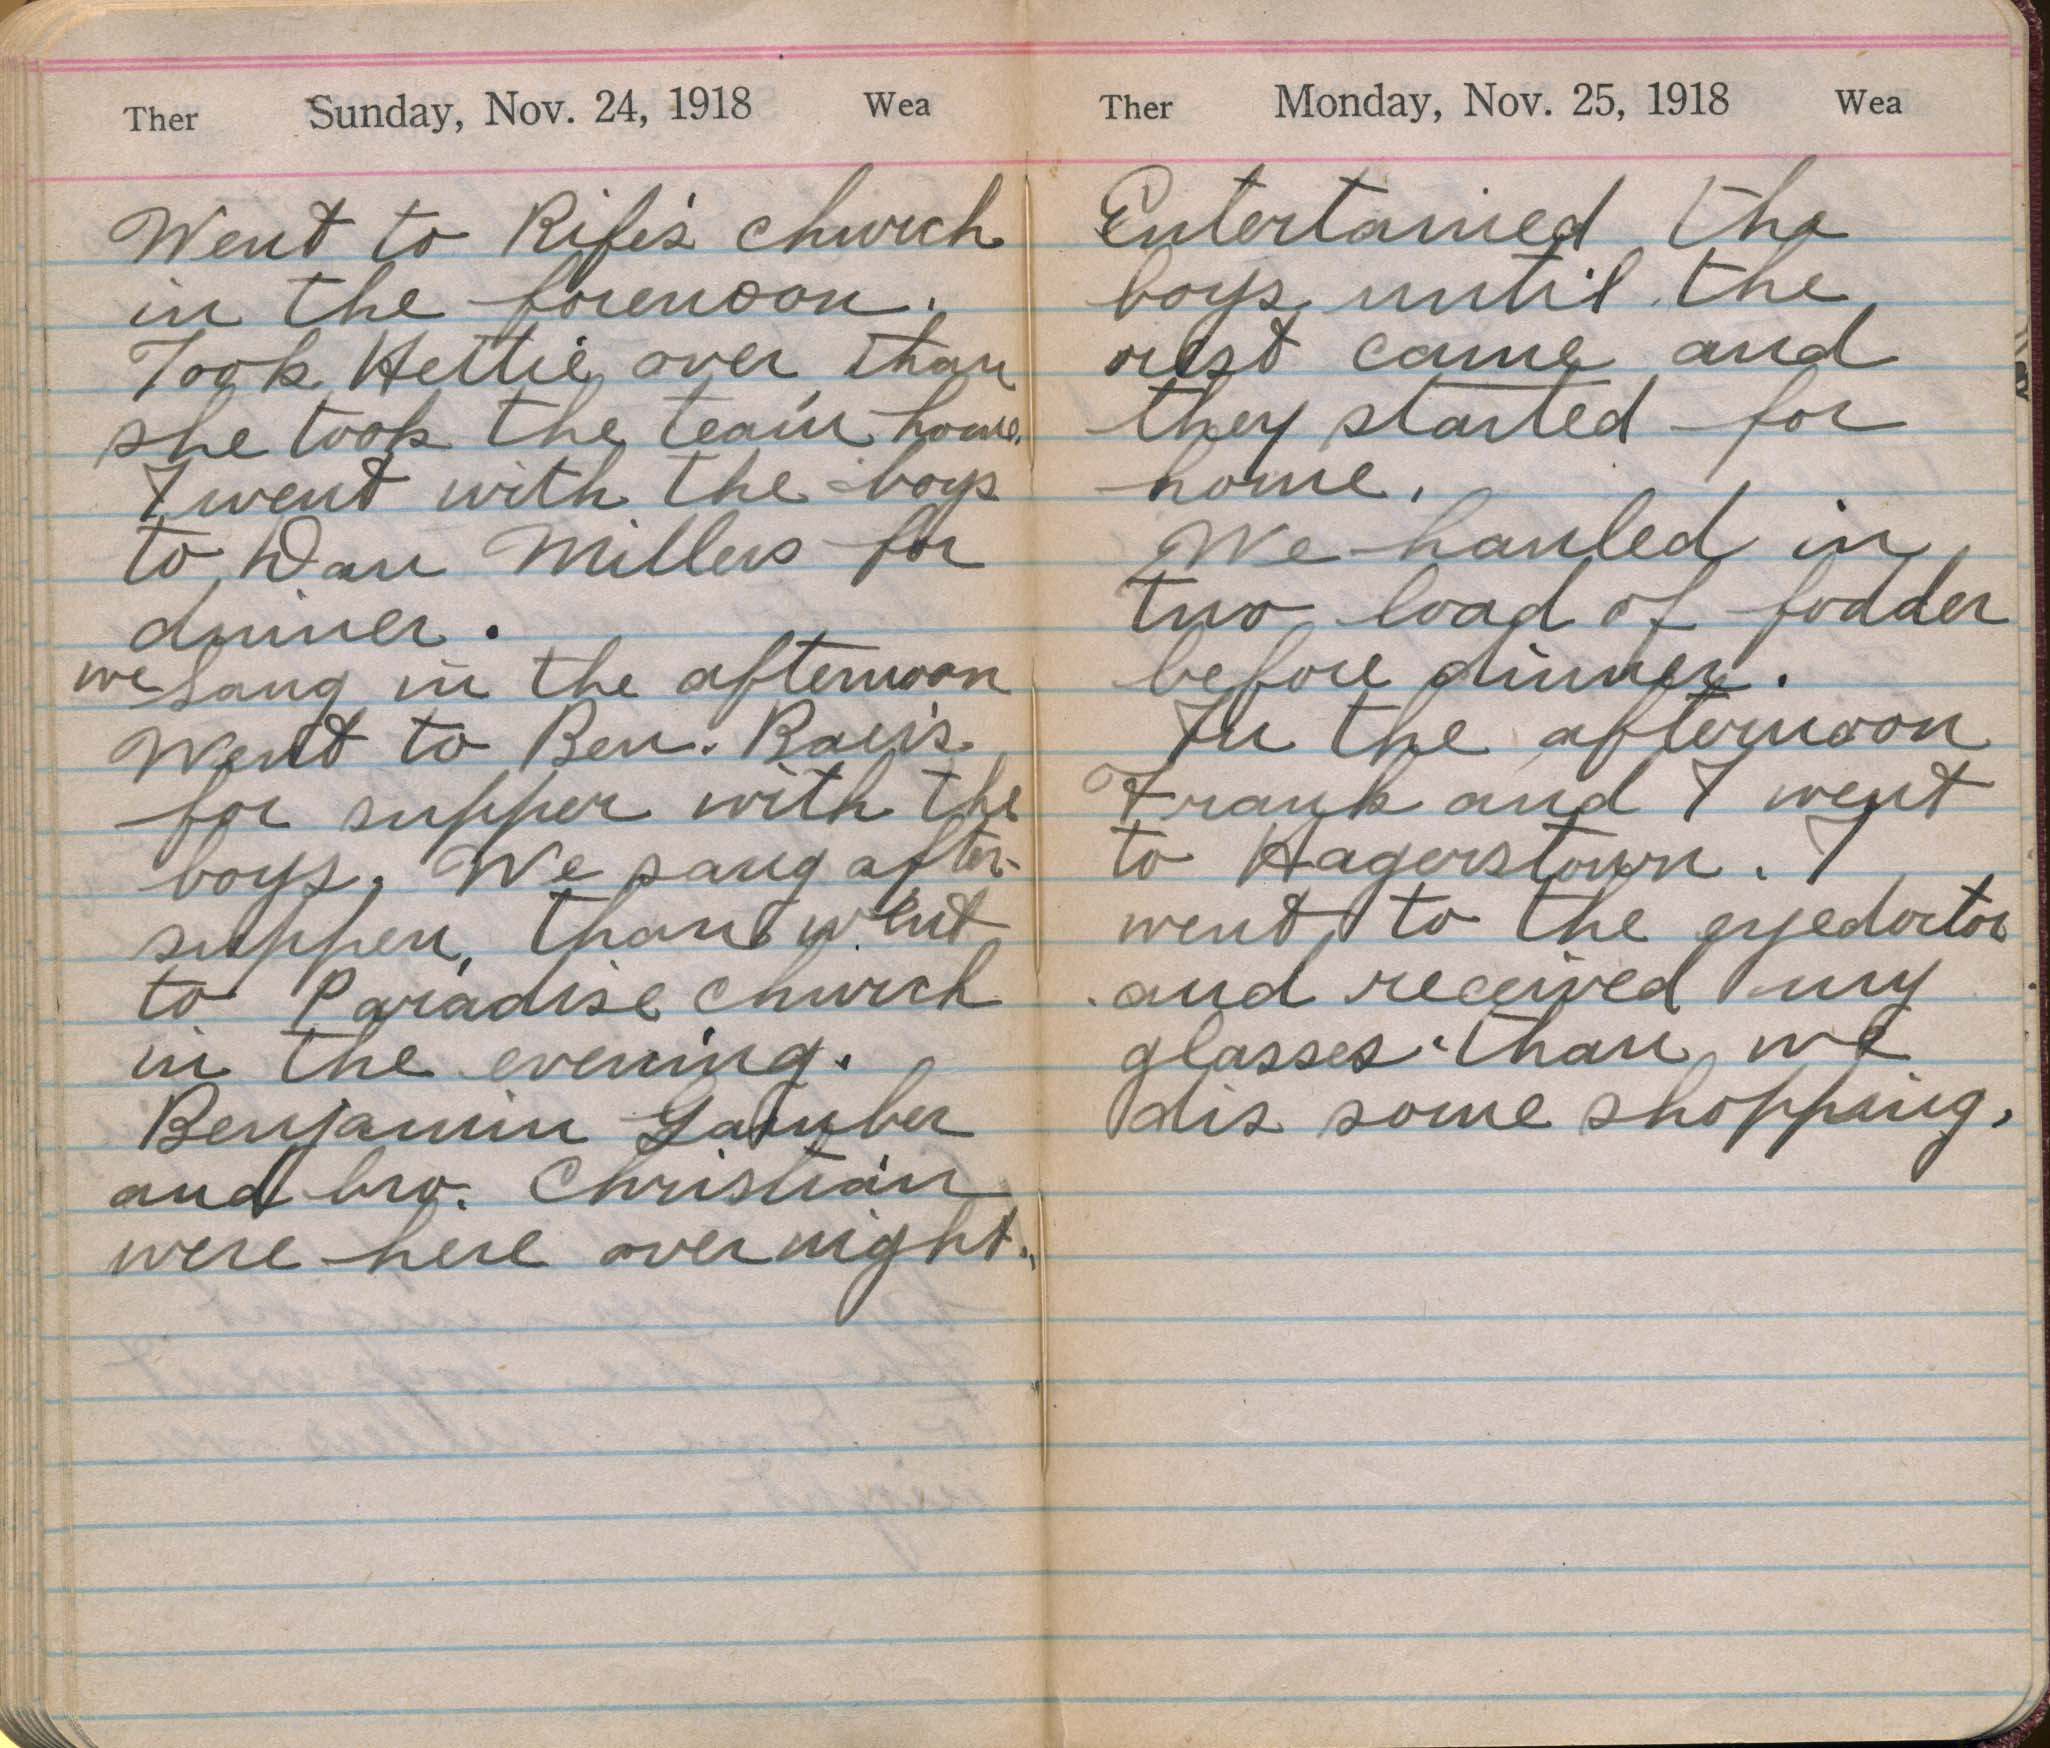 Ther Sunday, Nov. 24, 1918 Wea
Went to Rife's church
in the forenoon.
Took Hettie over than
she took the team home.
I went with the boys
to Dan Millers for
dinner.
we sang in the afternoon
Went to Ben.
for supper with the
boys. We sang after
supper, than went
to Paradise church
in the evening.
Benjamin
and bro. Christian
were here over night.
Ther Monday, Nov. 25, 1918 Wea
Entertained the
boys until the
rest came and
they started for
home.
We hauled in
two load of fodder
before dinner.
In the afternoon
Frank and I went
to Hagerstown. I
went to the eyedoctor
and received my
glasses than we
dis some shopping.